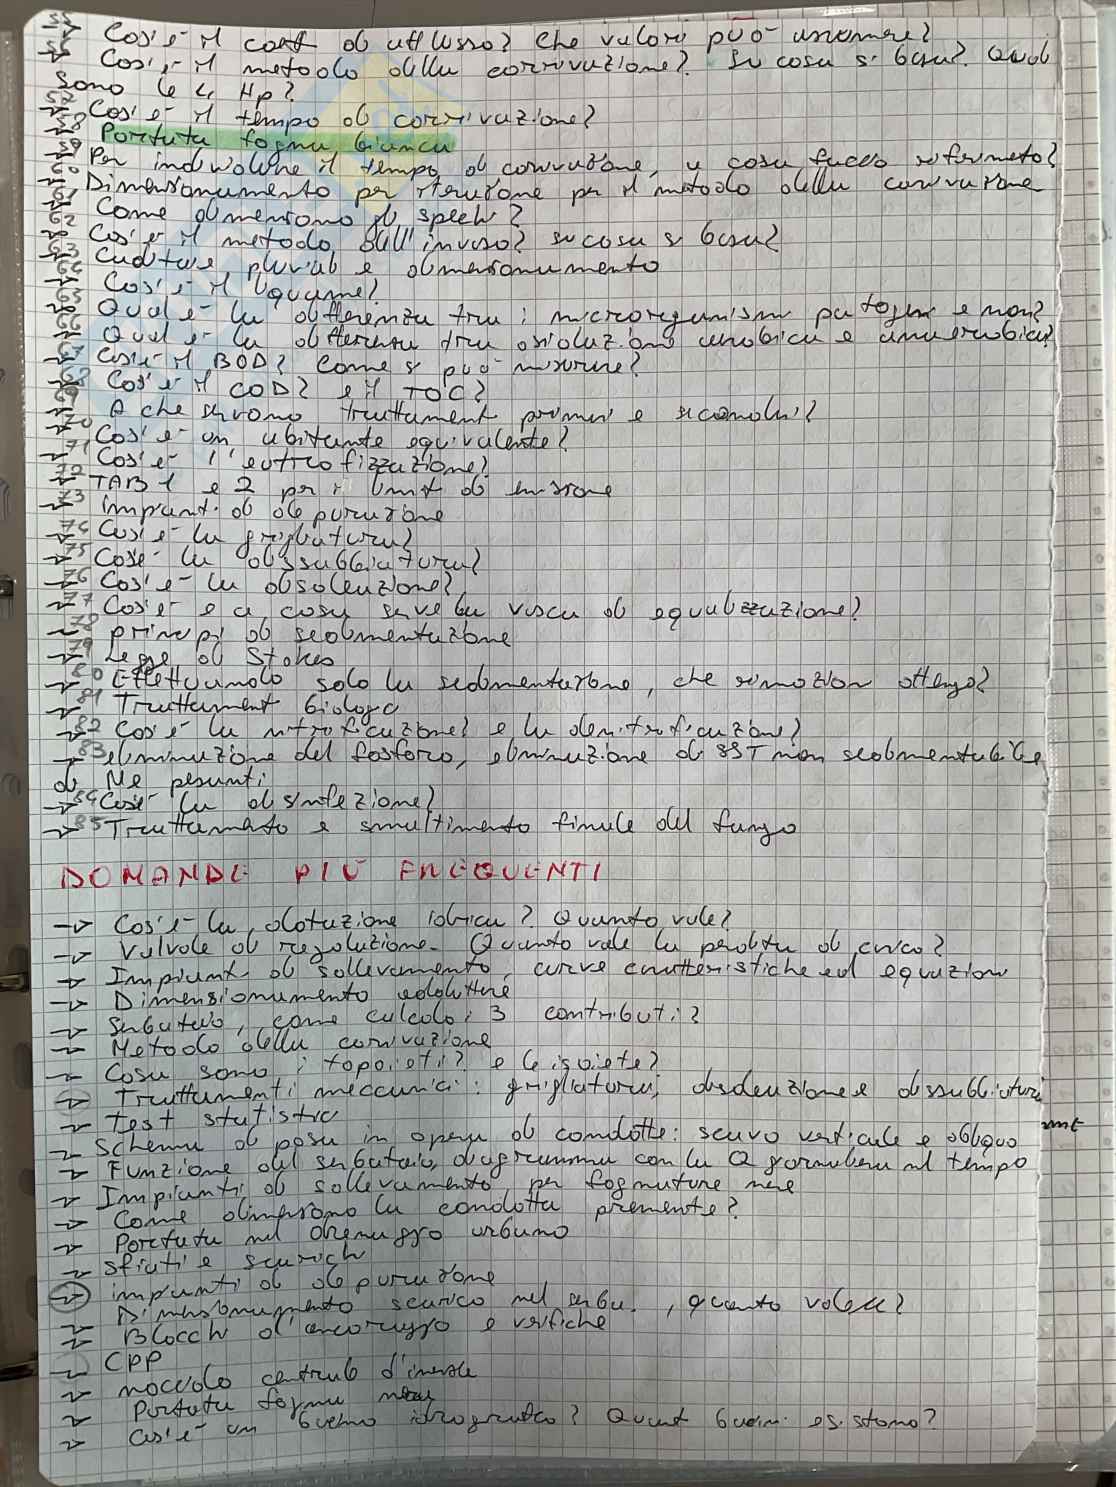 Cos'è il coeff di afflusso? Che valori può assumere?
Cos'è il metodo della corrivazione? Su cosa si basa? Quali
sono le 4 Hp?
57 Cos'è il tempo di corrivazione?
58 Portata fogna bianca
59 Per individuare il tempo di corrivazione, a cosa faccio riferimento?
60 Dimensionamento per iterazione per il metodo della corrivazione
61 Come dimensiono gli spechi?
62 Cos'è il metodo dell'invaso? su cosa si basa?
63 Caditoie pluviali e dimensionamento
64 Cos'è il liquame?
65 Qual è la differenza tra i microrganismi patogeni e non?
66 Qual è la differenza tra ossidazione aerobica e anaerobica?
67 Cos'è il BOD? Come si può misurare?
68 Cos'è il COD? e il TOC?
69 A che servono trattamenti primari e secondari?
70 Cos'è un abitante equivalente?
71 Cos'è l'eutrofizzazione?
72 TAB 1 e 2 per i limiti di emissione
73 impianti di depurazione
74 Cos'è la grigliatura?
75 Cos'è la dissabbiatura?
76 Cos'è la disoleazione?
77 Cos'è e a cosa serve la vasca di equalizzazione?
78 principi di sedimentazione
79 Legge di Stokes
80 Effettuando solo la sedimentazione, che rimozioni ottengo?
81 Trattamenti biologici
82 Cos'è la nitrificazione? e la denitrificazione?
83 eliminazione del fosforo, eliminazione di SST non sedimentabili e
di Me pesanti
84 Cos'è la disinfezione?
85 Trattamento e smaltimento finale del fango
DOMANDE PIÙ FREQUENTI
Cos'è la dotazione idrica? Quanto vale?
Valvole di regolazione. Quanto vale la perdita di carico?
Impianti di sollevamento, curve caratteristiche ed equazioni
Dimensionamento adduttrice
Serbatoio, come calcolo i 3 contributi?
Metodo della corrivazione
Cosa sono i topoieti? e le isoiete?
Trattamenti meccanici: grigliatura, disoleazione e dissabbiatura
test statistici
Schema di posa in opera di condotte: scavo verticale e obliquo
Funzione del serbatoio, diagramma con la Q giornaliera nel tempo
Impianti di sollevamento per fognature nere
Come dimensiono la condotta premente?
Portata nel drenaggio urbano
Sfiati e scarichi
impianti di depurazione
Dimensionamento scarico nel serba., quanto vale a?
Blocchi d'ancoraggio e verifiche
CPP
nocciolo centrale d'inerzia
Portata fogna nera
Cos'è un bacino idrografico? Quanti bacini esistono?